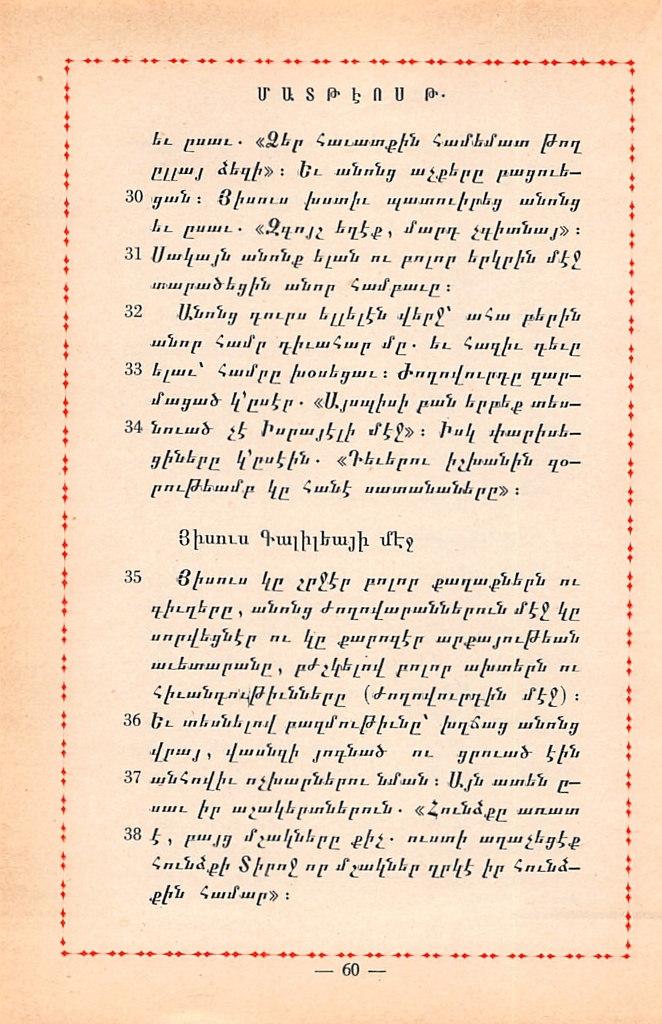 ՄԱՏԹԷՈՍ Թ.
եւ ըսաւ. «Ձեր հաւատքին համեմատ թող
ըլլայ ձեզի»։ Եւ անոնց աչքերը բացուե–
30 ցան։ Յիսուս խստիւ պատուիրեց անոնց
եւ ըսաւ. «Զգոյշ եղէք, մարդ չգիտնայ»։
31 Սակայն անոնք ելան ու բոլոր երկրին մէջ
տարածեցին անոր համբաւը։
32 Անոնց դուրս ելլելէն վերջ՝ ահա բերին
անոր համր դիւահար մը. եւ հազիւ դեւը
33 ելաւ՝ համրը խօսեցաւ։ Ժողովուրդը զար–
մացած կ՚ըսէր. «Այսպիսի բան երբեք տես–
34 նուած չէ Իսրայէլի մէջ»։ Իսկ փարիսե–
ցիները կ՚ըսէին. «Դեւերու իշխանին զօ–
րութեամբ կը հանէ սատանաները»։
Յիսուս Գալիլեայի մէջ
35 Յիսուս կը շրջէր բոլոր քաղաքներն ու
գիւղերը, անոնց ժողովարաններուն մէջ կը
սորվեցնէր ու կը քարոզէր արքայութեան
աւետարանը, բժշկելով բոլոր ախտերն ու
հիւանդութիւնները (ժողովուրդին մէջ)։
36 Եւ տեսնելով բազմութիւնը՝ խղճաց անոնց
վրայ, վասնզի յոգնած ու ցրուած էին
37 անհովիւ ոչխարներու նման։ Այն ատեն ը–
սաւ իր աշակերտներուն. «Հունձքը առատ
38 է, բայց մշակները քիչ. ուստի աղաչեցէք
հունձքի Տիրոջ որ մշակներ ղրկէ իր հունձ–
քին համար»։
— 60 —